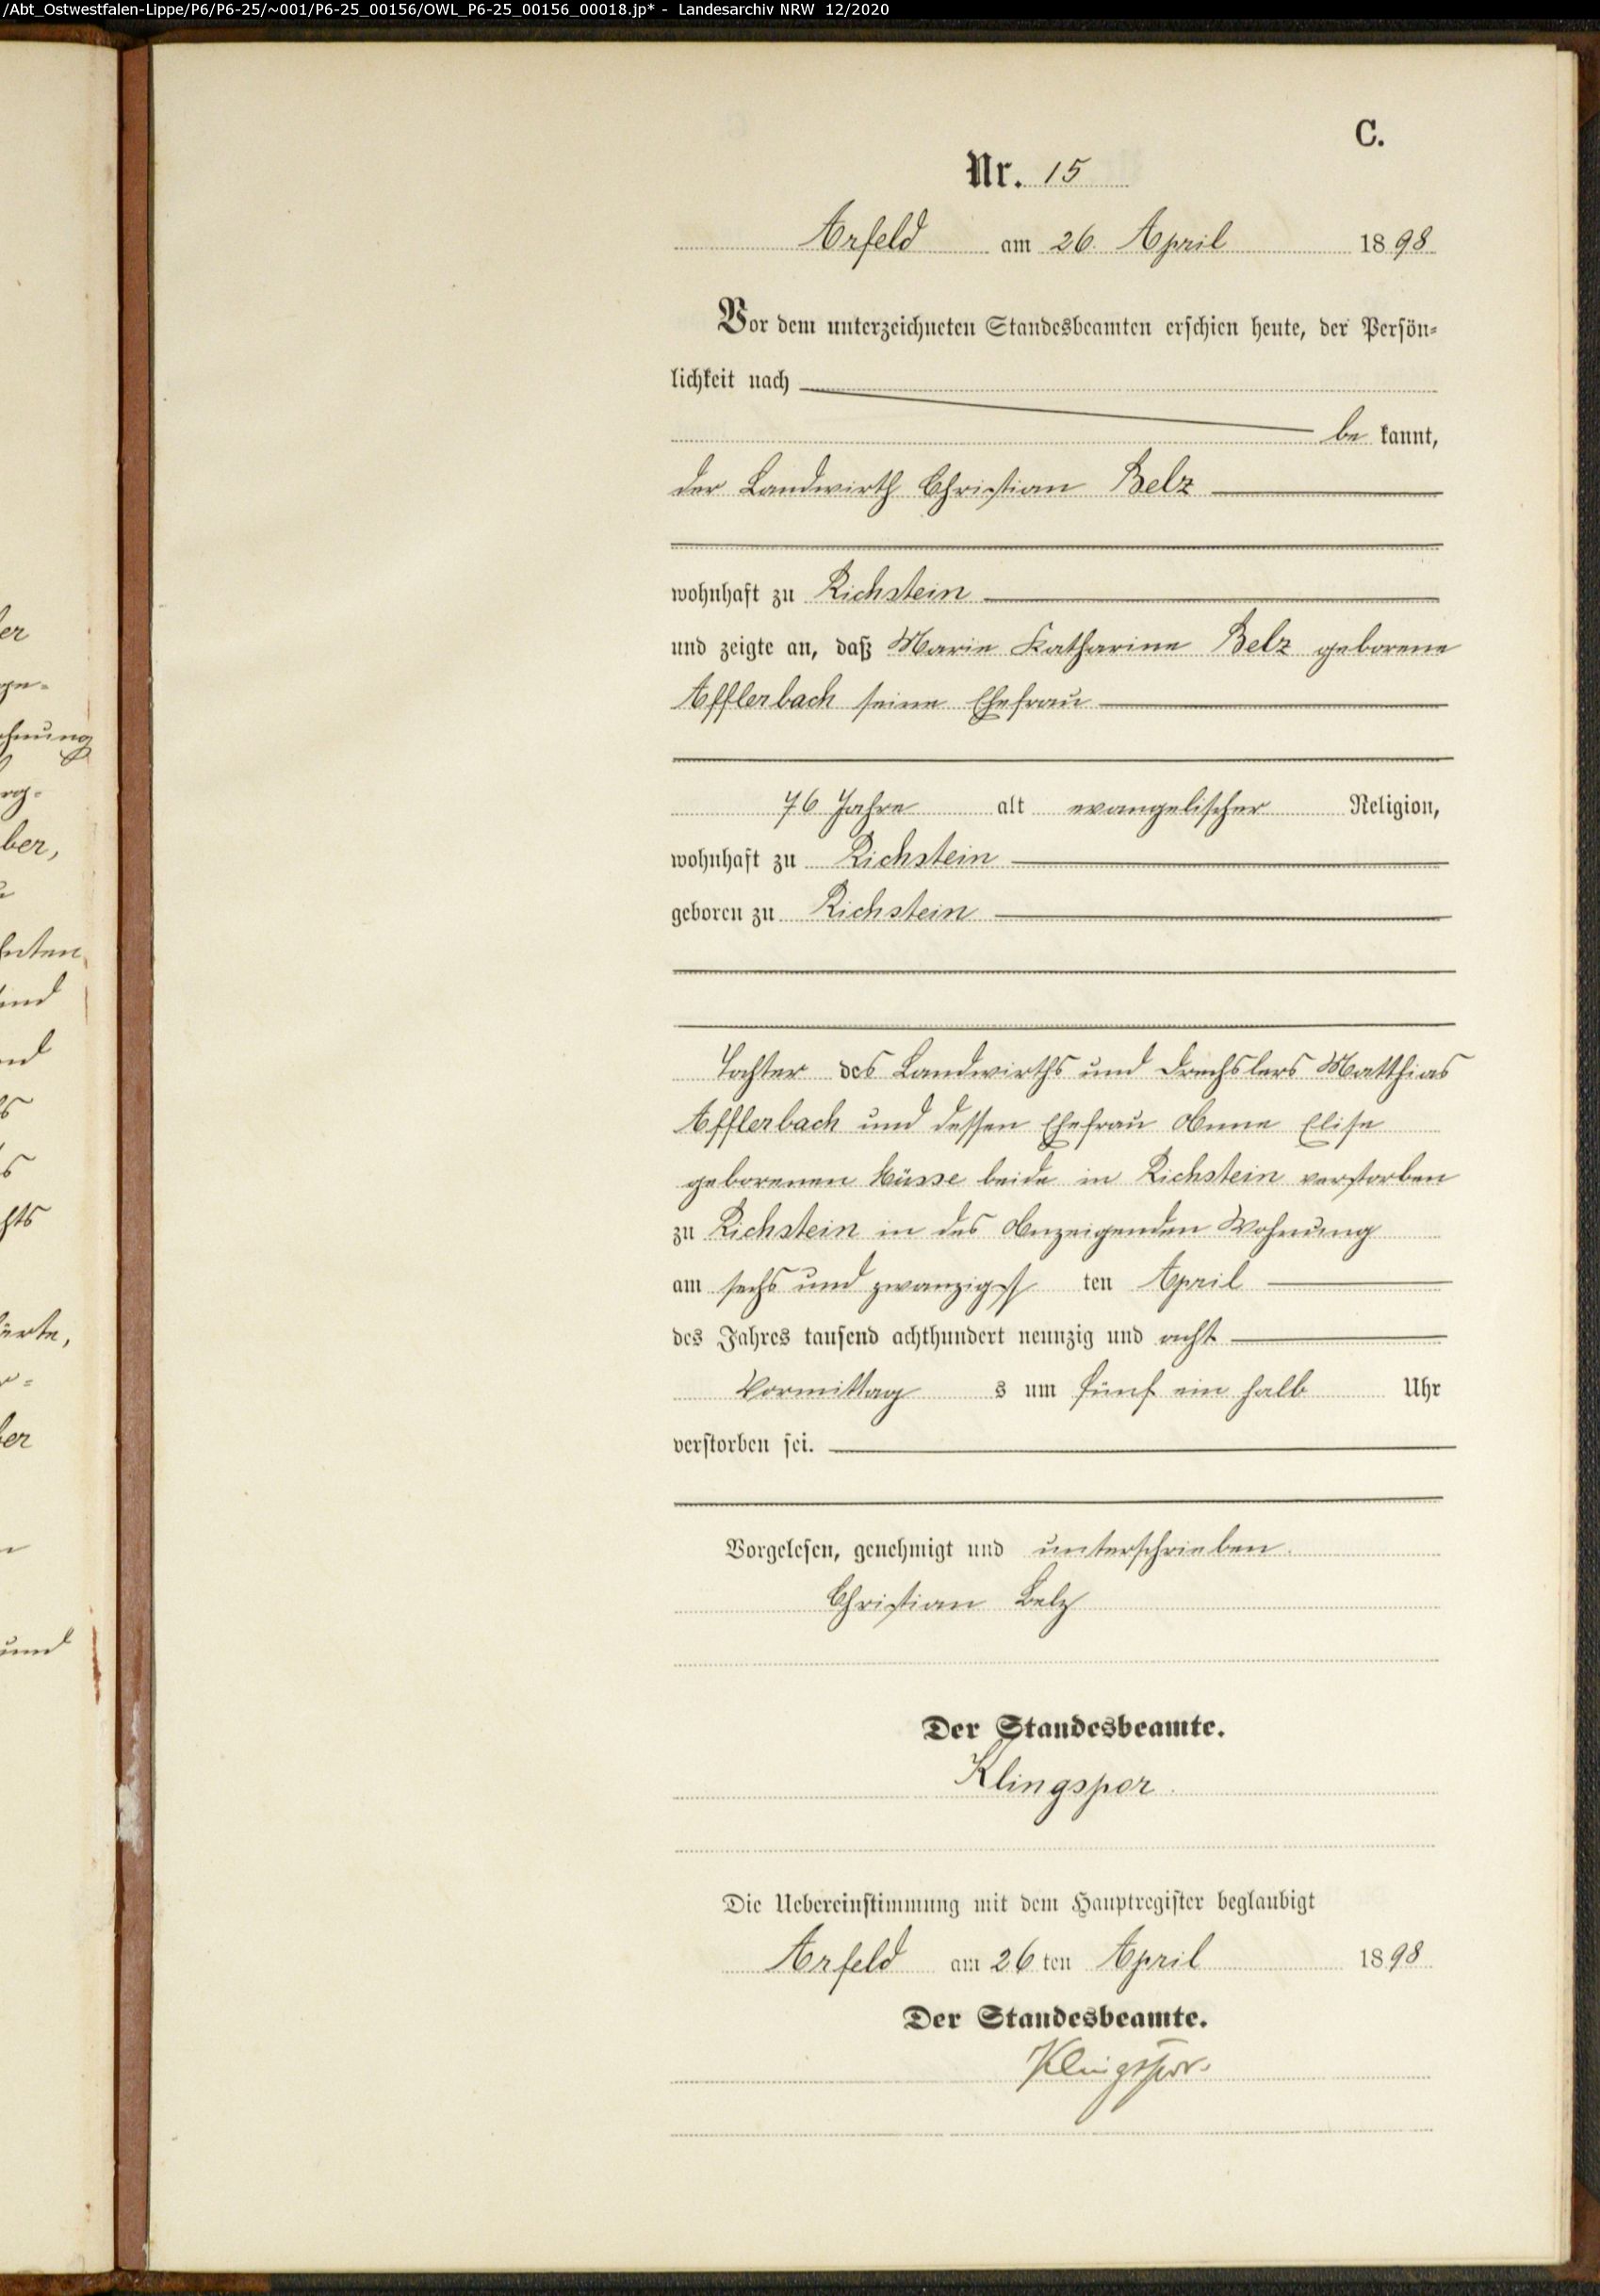 /Abt_Ostwestfalen-Lippe/P6/P6-25/~001/P6-25_00156/OWL_P6-25_00156_00018.jp* - Landesarchiv NRW 12/2020
C.
Nr. 15
Arfeld am 26. April 1898
Vor dem unterzeichneten Standesbeamten erschien heute, der Persön-
lichkeit nach
be kannt,
der Landwirth Christian Belz
wohnhaft zu Richstein
und zeigte an, daß Marie Katharine Belz geborene
Afflerbach seine Ehefrau
76 Jahre alt evangelischer Religion,
wohnhaft zu Richstein
geboren zu Richstein
Tochter des Landwirths und Drechslers Matthias
Afflerbach und dessen Ehefrau Anne Elise
geborenen beide in Richstein verstorben
zu Richstein in des Anzeigenden Wohnung
am sechs und zwanzigst ten April
des Jahres tausend achthundert neunzig und acht
Vormittag s um fünf ein halb Uhr
verstorben sei.
Vorgelesen, genehmigt und unterschrieben.
Christian Belz
Der Standesbeamte.
Klingspor.
Die Uebereinstimmung mit dem Hauptregister beglaubigt
Arfeld am 26 ten April 1898
Der Standesbeamte.
Klingspor.